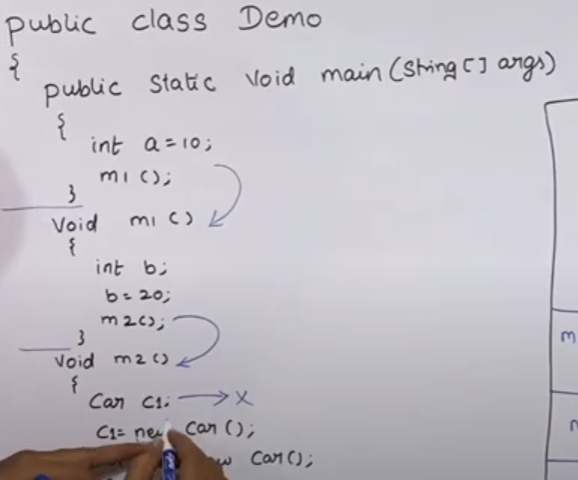 public class Demo
{
public static void main (String [] args)
{
int a = 10;
m1 ();
}
Void m1 ()
{
int b;
b = 20;
m2();
}
Void m2 ()
{
Car C1; X
C1 = new Car ();
Car();
m